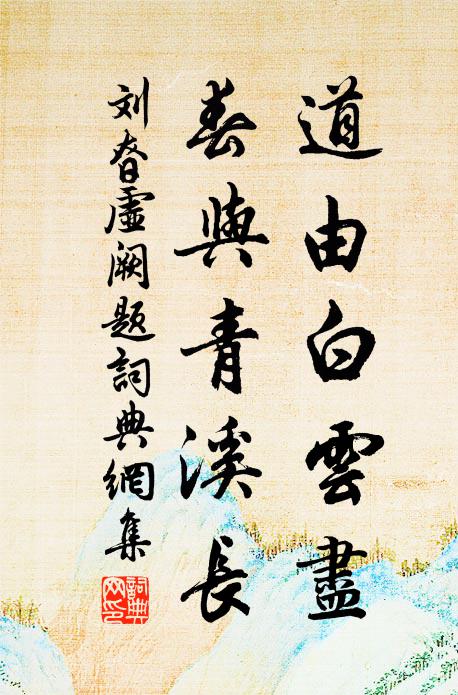 道由白雲盡
春與青溪長
刘昚虛阙題詞典網集
詞典